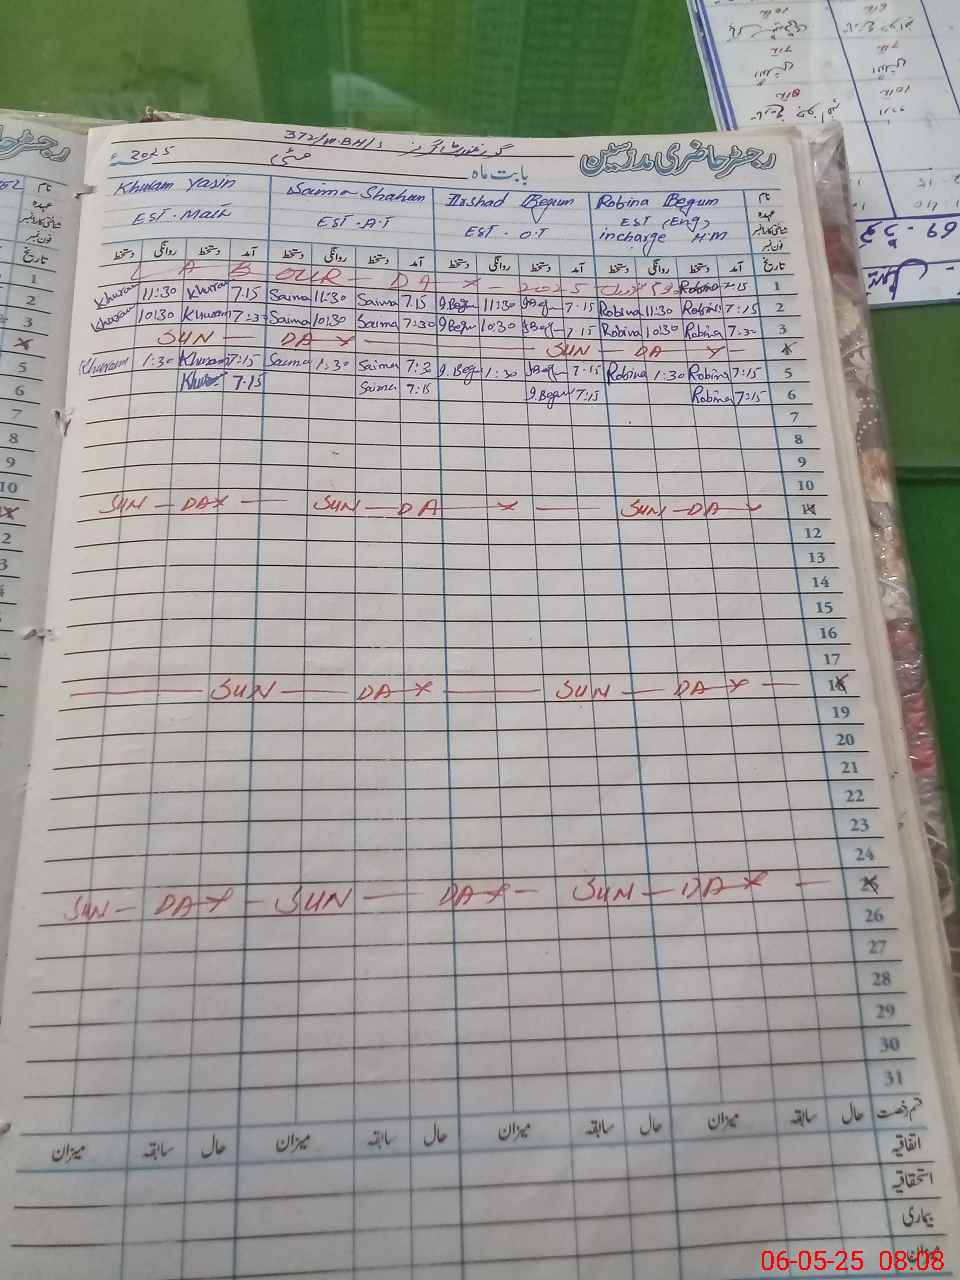 رجسٹر حاضری مدرسین
372/M.BH/s
2025ء
بابت ماہ مئی
نام Robina Begum Irshad Begum Saima Shahan Khuram Yasin
عہدہ EST (Eng) incharge H.M EST - O.T EST - A.T EST - Math
شناختی کارڈ نمبر
فون نمبر
تاریخ آمد دستخط روانگی دستخط آمد دستخط روانگی دستخط آمد دستخط روانگی دستخط آمد دستخط روانگی دستخط
LABOUR - DAY - 2025 Robina 7:15 1
Khuram 11:30 Khuram 7:15 Saima 11:30 Saima 7:15 I.Begum 11:30 I.Begum 7:15 Robina 11:30 Robina 7:15 2
Khuram 10:30 Khuram 7:30 Saima 10:30 Saima 7:30 I.Begum 10:30 I.Begum 7:15 Robina 10:30 Robina 7:30 3
SUN - DAY - SUN - DAY - 4
Khuram 1:30 Khuram 7:15 Saima 1:30 Saima 7:30 I.Begum 1:30 I.Begum 7:15 Robina 1:30 Robina 7:15 5
Khuram 7:15 Saima 7:15 I.Begum 7:15 Robina 7:15 6
7
8
9
10
SUN - DAY - SUN - DAY - SUN - DAY 11
12
13
14
15
16
17
SUN - DAY - SUN - DAY - 18
19
20
21
22
23
24
SUN - DAY - SUN - DAY - SUN - DAY - 25
26
27
28
29
30
31
قسم رخصت حال سابقہ میزان حال سابقہ میزان حال سابقہ میزان حال سابقہ میزان
اتفاقیہ
استحقاقیہ
بیماری
میزان
06-05-25 08:08